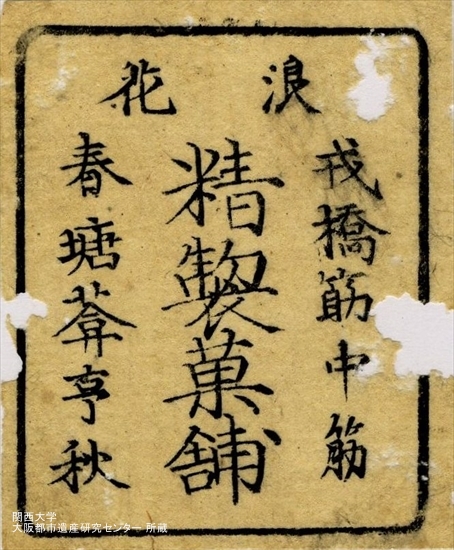 浪花
戎橋筋中筋
精製菓舗
春塘葊亨秋
関西大学
大阪都市遺産研究センター 所蔵